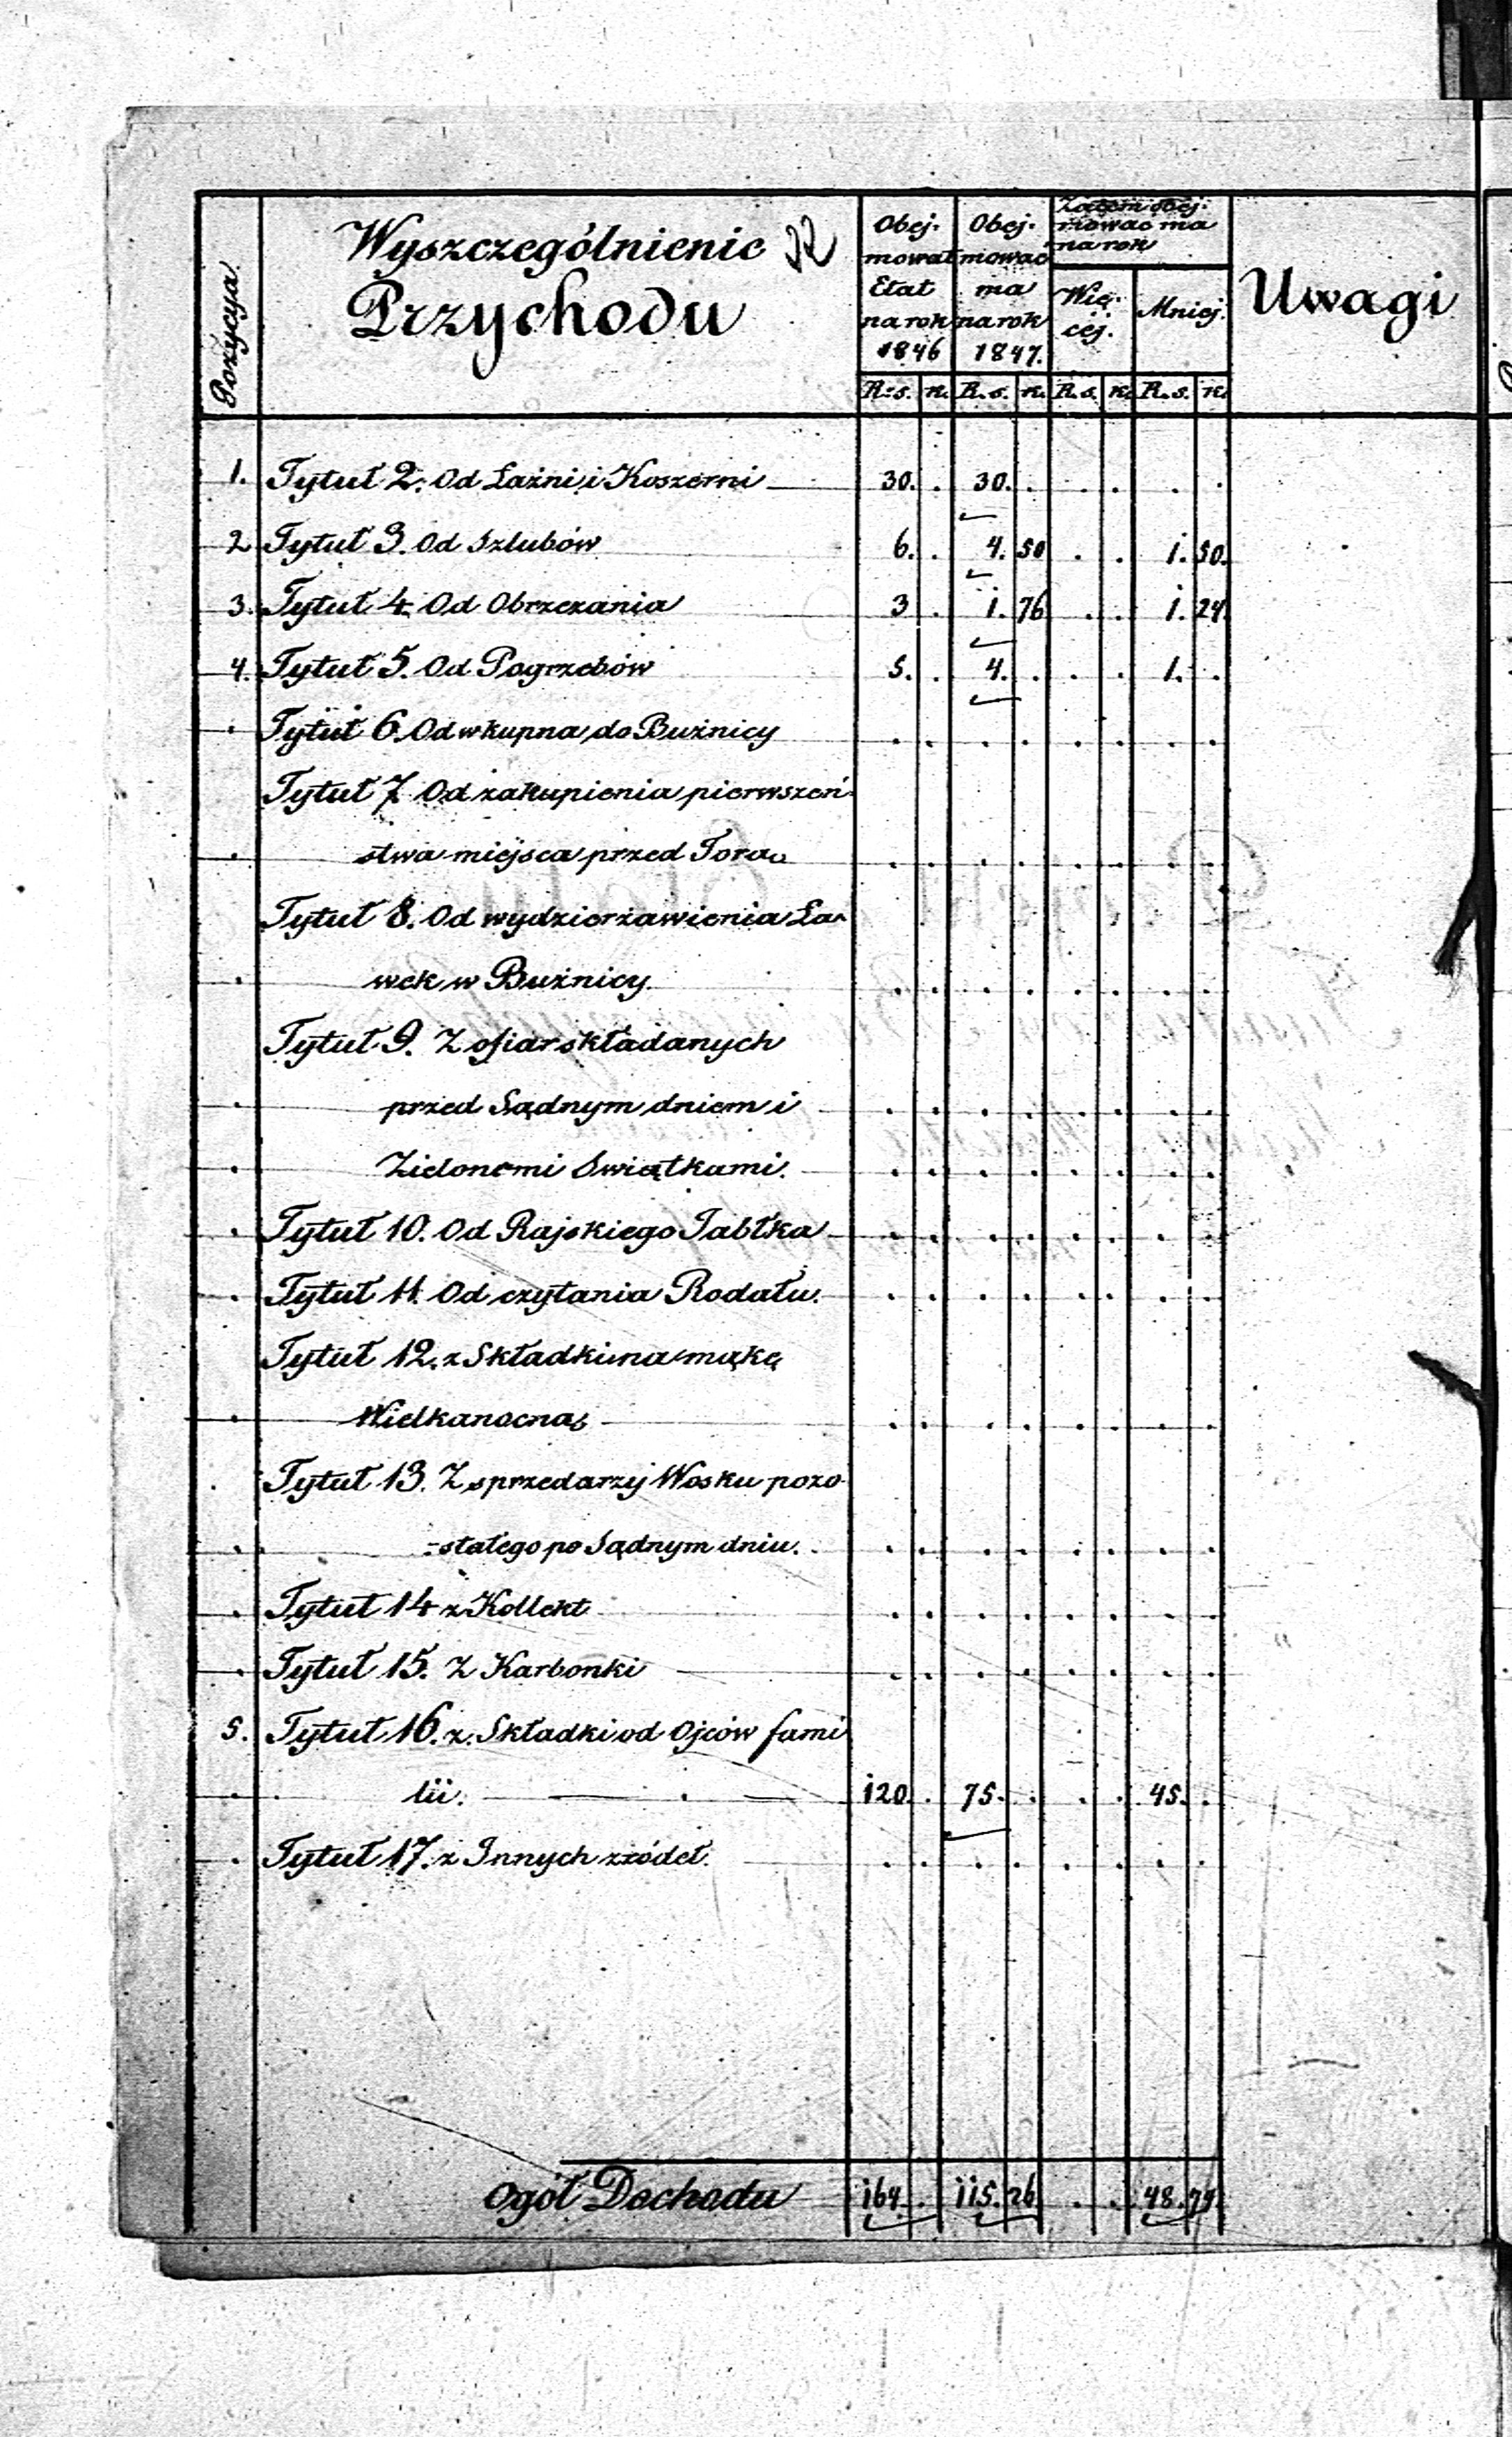 Pozycya
Wyszczególnienie
Przychodu
Obej-
mował
Etat
na rok
1846
Obej-
mować
ma
na rok
1847.
Zatem obej-
mować ma
na rok
Wię-
cej.
Mniej.
Uwagi
R. s. k. R. s. k. R. s. k. R. s. k.
1. Tytuł 2. Od Łaźni i Koszerni 30. . 30. . . . . .
2 Tytuł 3. Od Szlubów 6. . 4. 50 . . 1. 50.
3. Tytuł 4. Od Obrzezania 3 . 1. 76 . . 1. 24.
4. Tytuł 5. Od Pogrzebów 5. . 4. . . . 1. .
. Tytuł 6. Od wkupna do Bużnicy . . . . . . . .
Tytuł 7 Od zakupienia pierwszeń-
. stwa miejsca przed Torą . . . . . . . .
Tytuł 8. Od wydzierżawienia Ła-
. wek w Bużnicy. . . . . . . . .
Tytuł 9. Z ofiar składanych
. przed Sądnym dniem i . . . . . . . .
. Zielonemi Swiątkami. . . . . . . . .
. Tytuł 10. Od Rajskiego Jabłka . . . . . . . .
. Tytuł 11. Od czytania Rodału. . . . . . . . .
Tytuł 12. z Składki na mąkę
. Wielkanocną . . . . . . . .
. Tytuł 13. Z sprzedarzy Wosku pozo-
. -stałego po Sądnym dniu. . . . . . . . .
. Tytuł 14 z Kollekt . . . . . . . .
. Tytuł 15. Z Karbonki . . . . . . . .
5. Tytuł 16. z Składki od Ojców fami
. lii. 120. . 75. . . . 45. .
. Tytuł 17. z Innych zródeł. . . . . . . . .
Ogół Dochodu 164. . 115. 26 . . 48. 74.